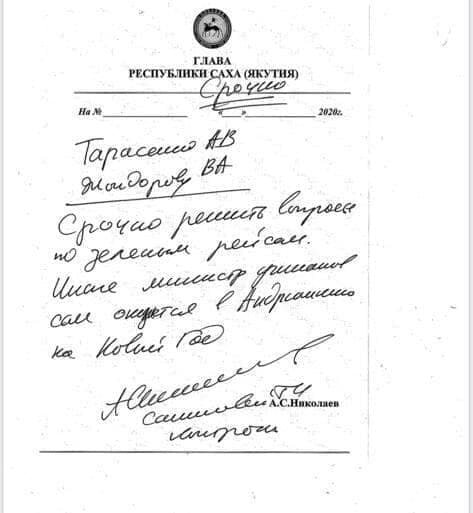 ГЛАВА
РЕСПУБЛИКИ САХА (ЯКУТИЯ)
Срочно
На № « » 2020г.
Тарасенко АВ
Жондорову ВА
Срочно решить вопросы
по зеленым рейсам.
Иначе министр финансов
сам окажется в Андрюшкино
на Новый Год
А.С.Николаев
контроль